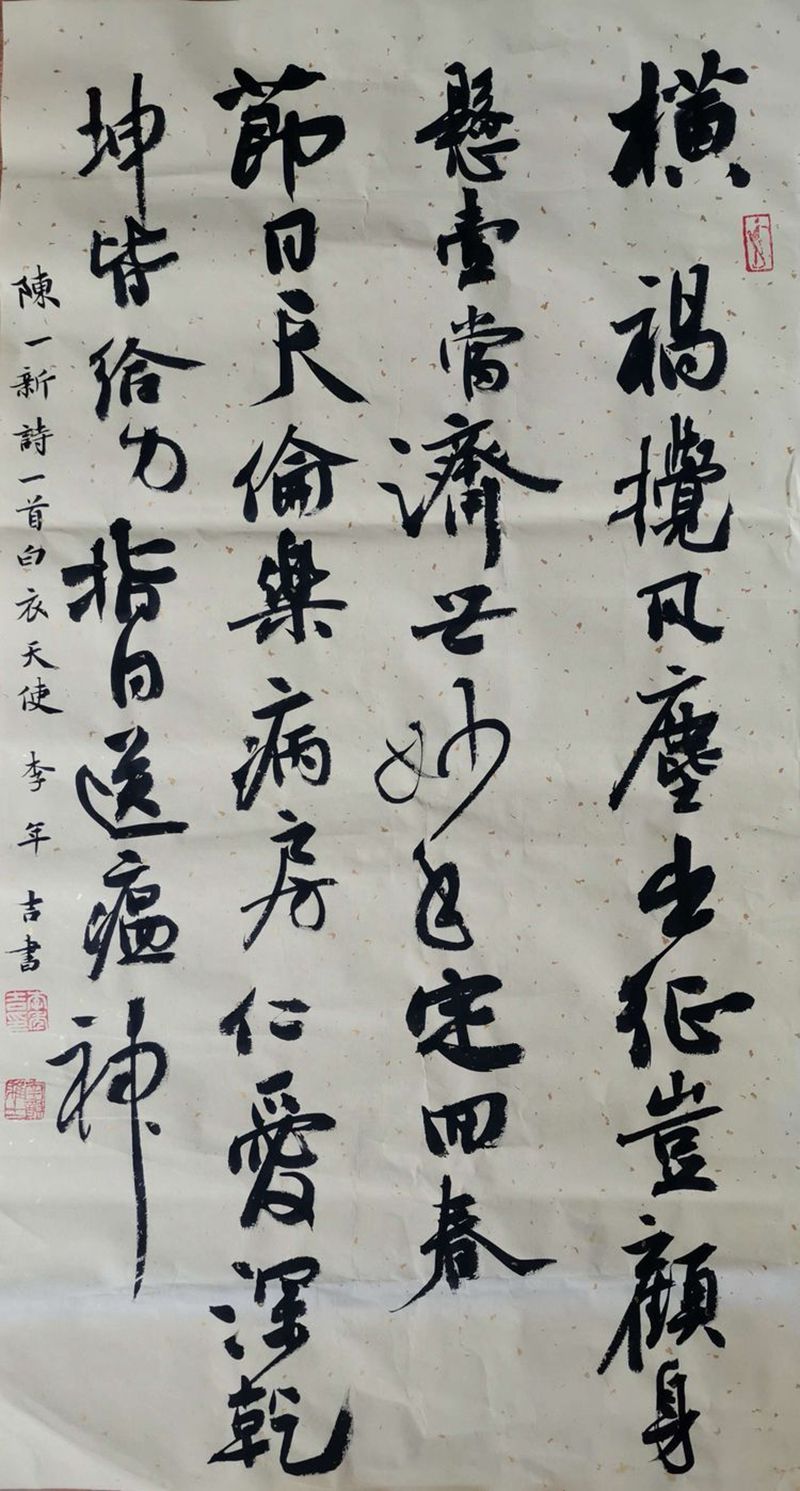 横禍攪风塵出征豈顧身
懸壺當濟世妙手定回春
節日天倫樂病房仁愛深乾
坤皆给力指日送瘟神
陳一新詩一首白衣天使 李年吉書